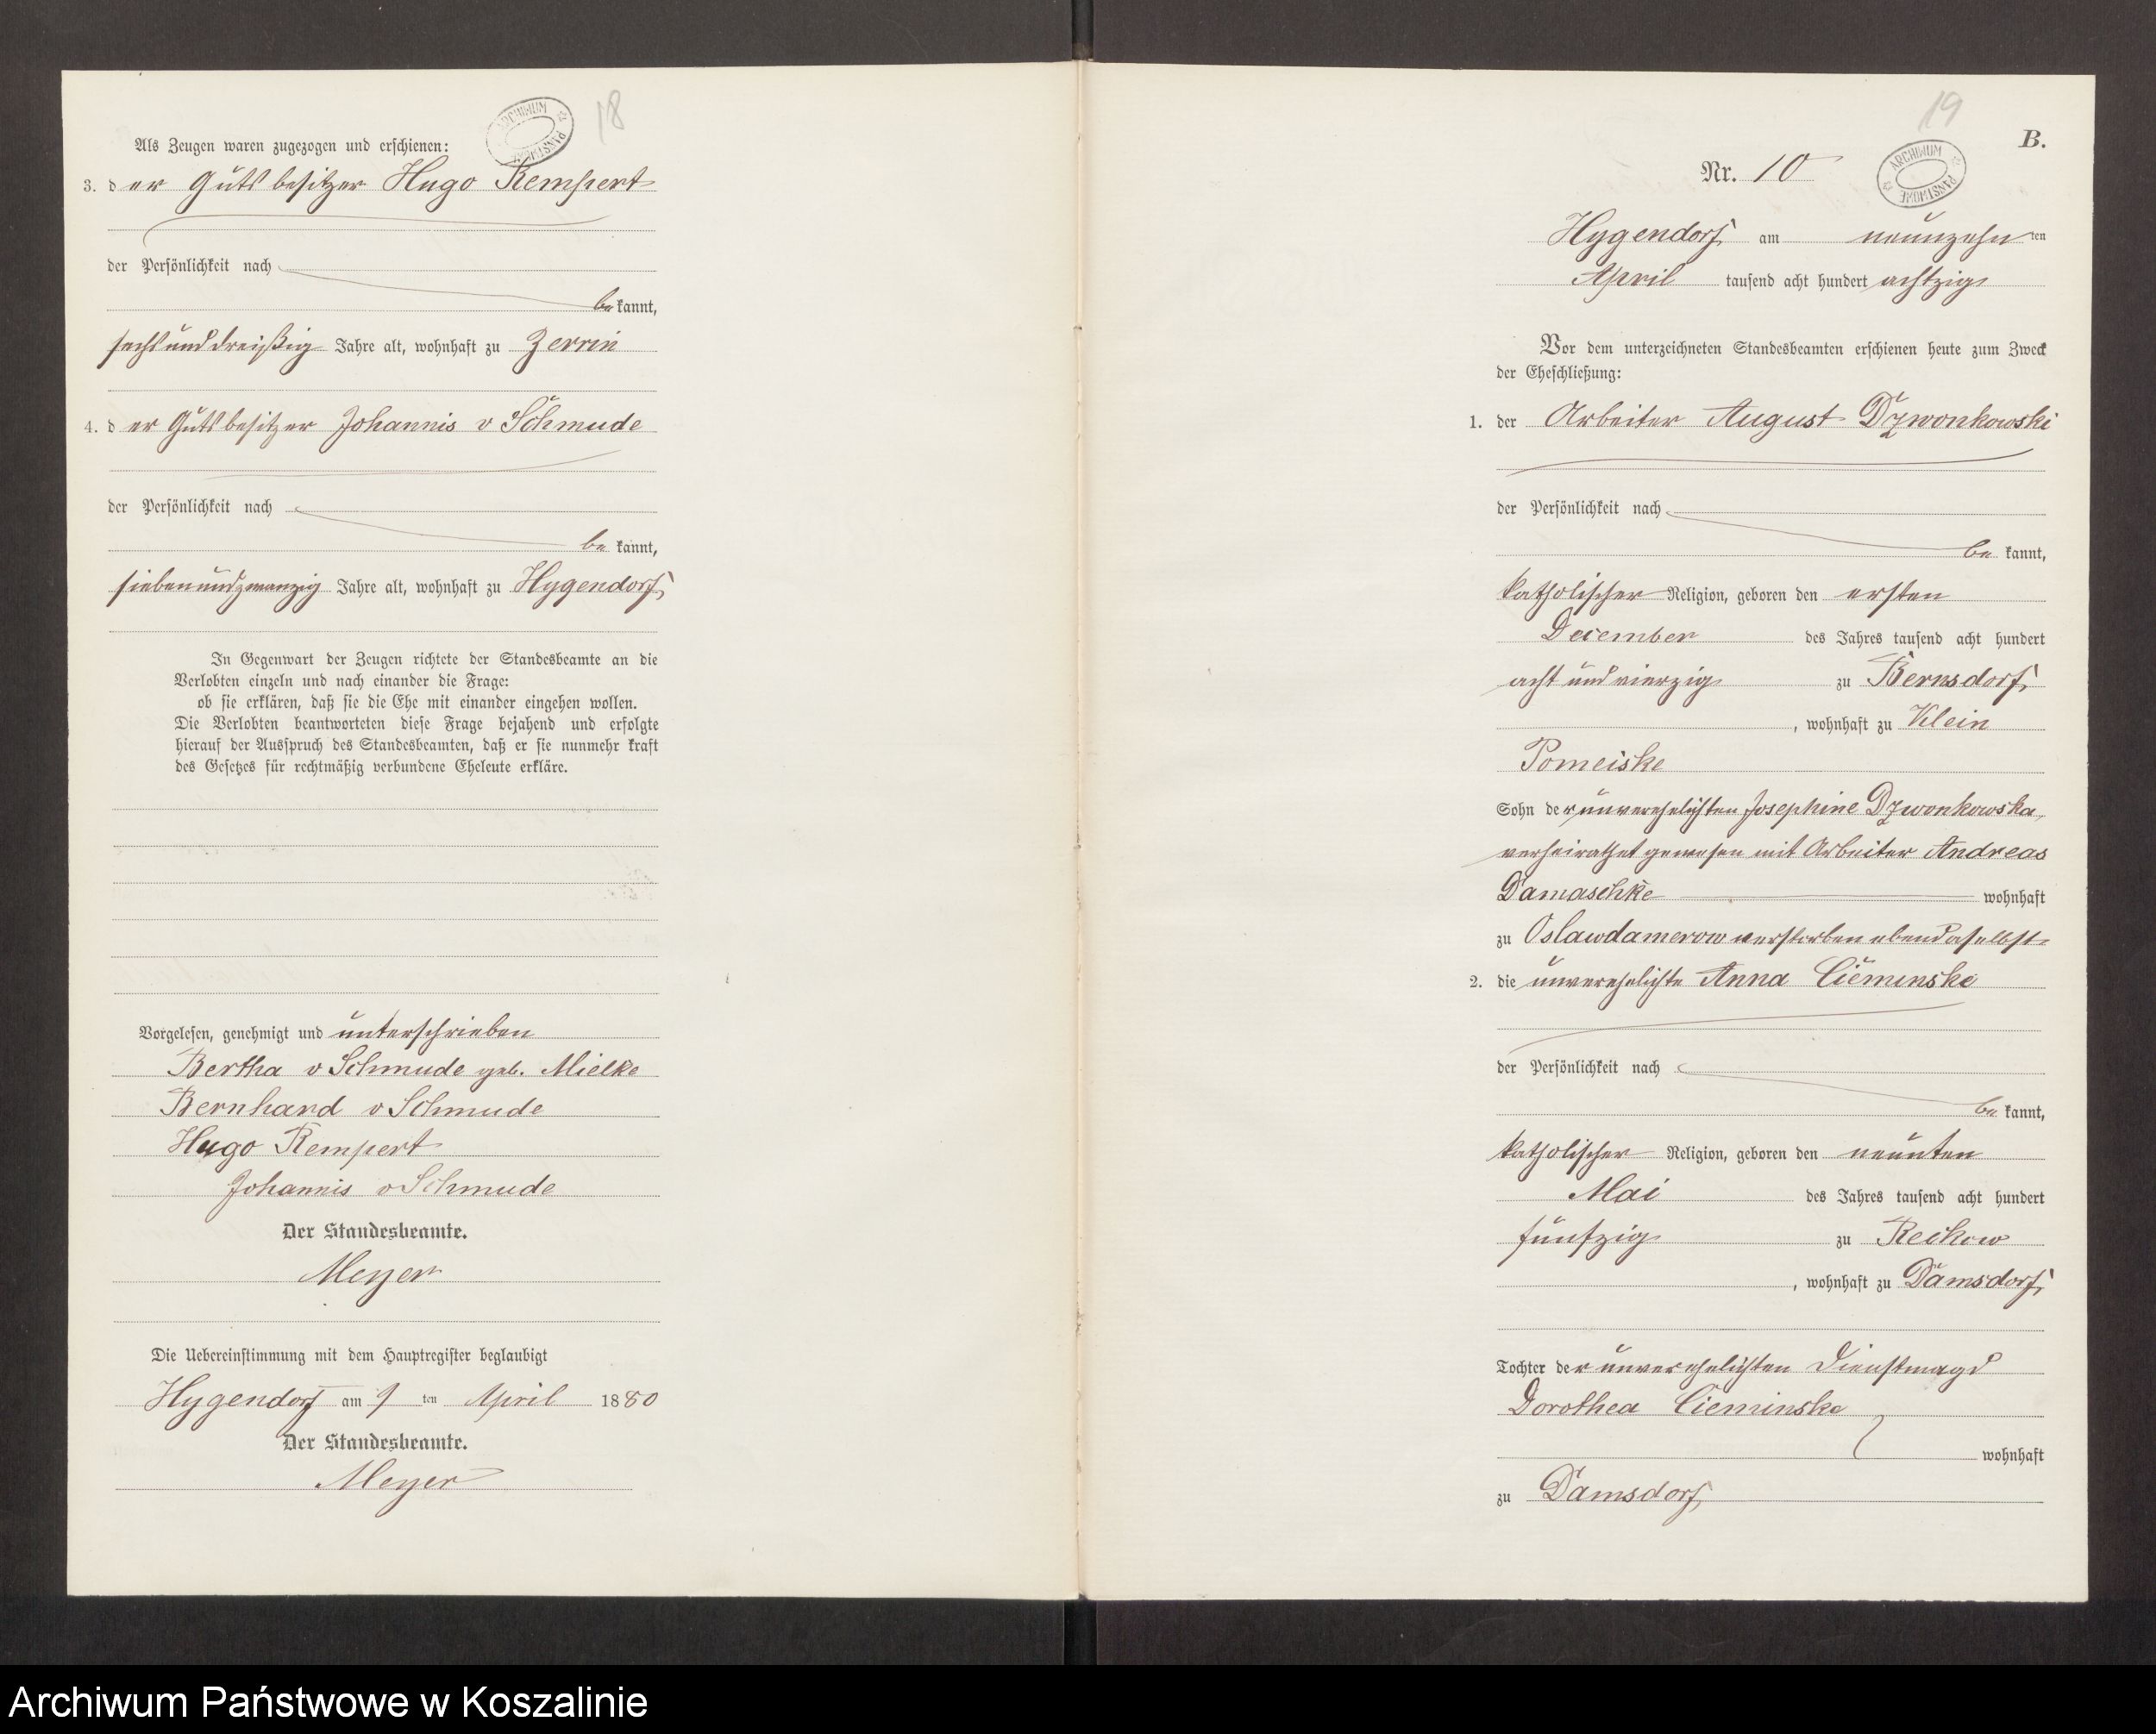 18
ARCHIWUM PAŃSTWOWE
Als Zeugen waren zugezogen und erschienen:
3. der Gutsbesitzer Hugo Rempert
der Persönlichkeit nach
bekannt,
sechsunddreißig Jahre alt, wohnhaft zu Zerrin
4. der Gutsbesitzer Johannis v Schmude
der Persönlichkeit nach
be kannt,
siebenundzwanzig Jahre alt, wohnhaft zu Hygendorf
In Gegenwart der Zeugen richtete der Standesbeamte an die
Verlobten einzeln und nach einander die Frage:
ob sie erklären, daß sie die Ehe mit einander eingehen wollen.
Die Verlobten beantworteten diese Frage bejahend und erfolgte
hierauf der Ausspruch des Standesbeamten, daß er sie nunmehr kraft
des Gesetzes für rechtmäßig verbundene Eheleute erkläre.
Vorgelesen, genehmigt und unterschrieben
Bertha v Schmude geb. Mielke
Bernhard v Schmude
Hugo Rempert
Johannis v Schmude
Der Standesbeamte.
Meyer
Die Uebereinstimmung mit dem Hauptregister beglaubigt
Hygendorf am 9 ten April 1880
Der Standesbeamte.
Meyer
19
B.
ARCHIWUM PAŃSTWOWE
Nr. 10
Hygendorf am neunzehn ten
April tausend acht hundert achtzig
Vor dem unterzeichneten Standesbeamten erschienen heute zum Zweck
der Eheschließung:
1. der Arbeiter August Dzwonkowski
der Persönlichkeit nach
be kannt,
katholischer Religion, geboren den ersten
December des Jahres tausend acht hundert
acht und vierzig zu Bernsdorf
, wohnhaft zu Klein
Pomeiske
Sohn der unverehelichten Josephine Dzwonkowska,
verheirathet gewesen mit Arbeiter Andreas
Damaschke wohnhaft
zu Oslawdamerow verstorben ebendaselbst
2. die unverehelichte Anna Cieminske
der Persönlichkeit nach
be kannt,
katholischer Religion, geboren den neunten
Mai des Jahres tausend acht hundert
fünfzig zu Reckow
, wohnhaft zu Damsdorf
Tochter der unverehelichten Dienstmagd
Dorothea Cieminske
wohnhaft
zu Damsdorf
Archiwum Państwowe w Koszalinie